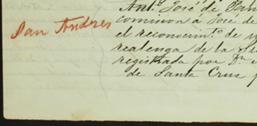 San Andres
Ant.º José de
comision á José de
el reconocim.to de
realenga de la
registrada por D.n
de Santa Cruz